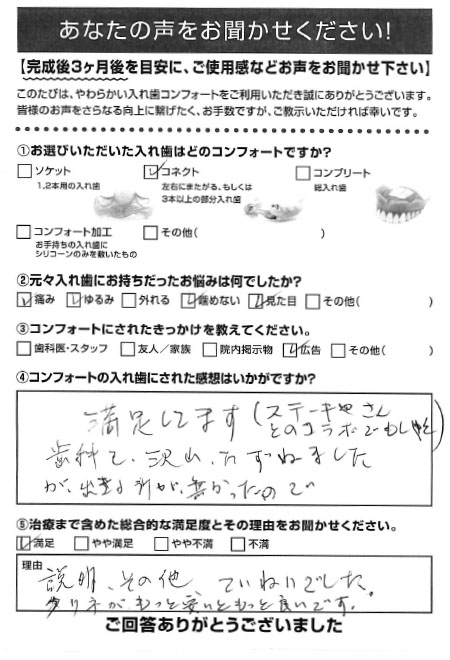 あなたの声をお聞かせください!
【完成後3ヶ月後を目安に、ご使用感などお声をお聞かせ下さい】
このたびは、やわらかい入れ歯コンフォートをご利用いただき誠にありがとうございます。
皆様のお声をさらなる向上に繋げたく、お手数ですが、ご教示いただければ幸いです。
①お選びいただいた入れ歯はどのコンフォートですか?
ソケット コネクト コンプリート
1,2本用の入れ歯 左右にまたがる、もしくは 総入れ歯
3本以上の部分入れ歯
コンフォート加工 その他( )
お手持ちの入れ歯に
シリコーンのみを敷いたもの
②元々入れ歯にお持ちだったお悩みは何でしたか?
痛み ゆるみ 外れる 噛めない 見た目 その他( )
③コンフォートにされたきっかけを教えてください。
歯科医・スタッフ 友人/家族 院内掲示物 広告 その他( )
④コンフォートの入れ歯にされた感想はいかがですか?
満足してます(ステーキ屋さん
とのコラボで
歯科で、沢山、たずねました
が、出来る所が、無かったので
⑤治療まで含めた総合的な満足度とその理由をお聞かせください。
満足 やや満足 やや不満 不満
理由
説明、その他、ていねいでした。
がもっと安いともっと良いです。
ご回答ありがとうございました